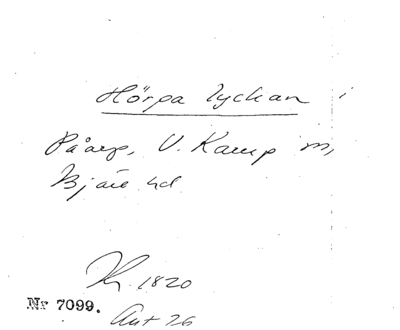 Hörpa lyckan i
Påarp, V. Karup sn,
Bjäre hd
Kr. 1820
Nr 7099.
Ant 26